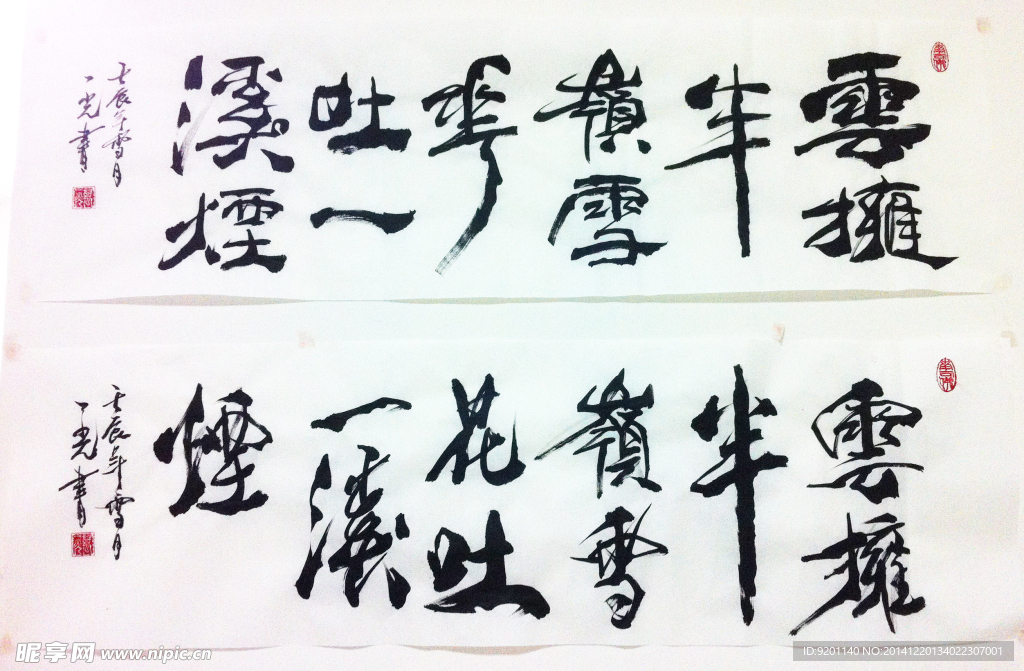 雲擁
半
嶺雪
華
吐一
溪煙
壬辰年雪月
一光書
雲擁
半
嶺雪
花吐
一溪
煙
壬辰年雪月
一光書
昵享网 www.nipic.cn
ID:9201140 NO:20141220134022307001